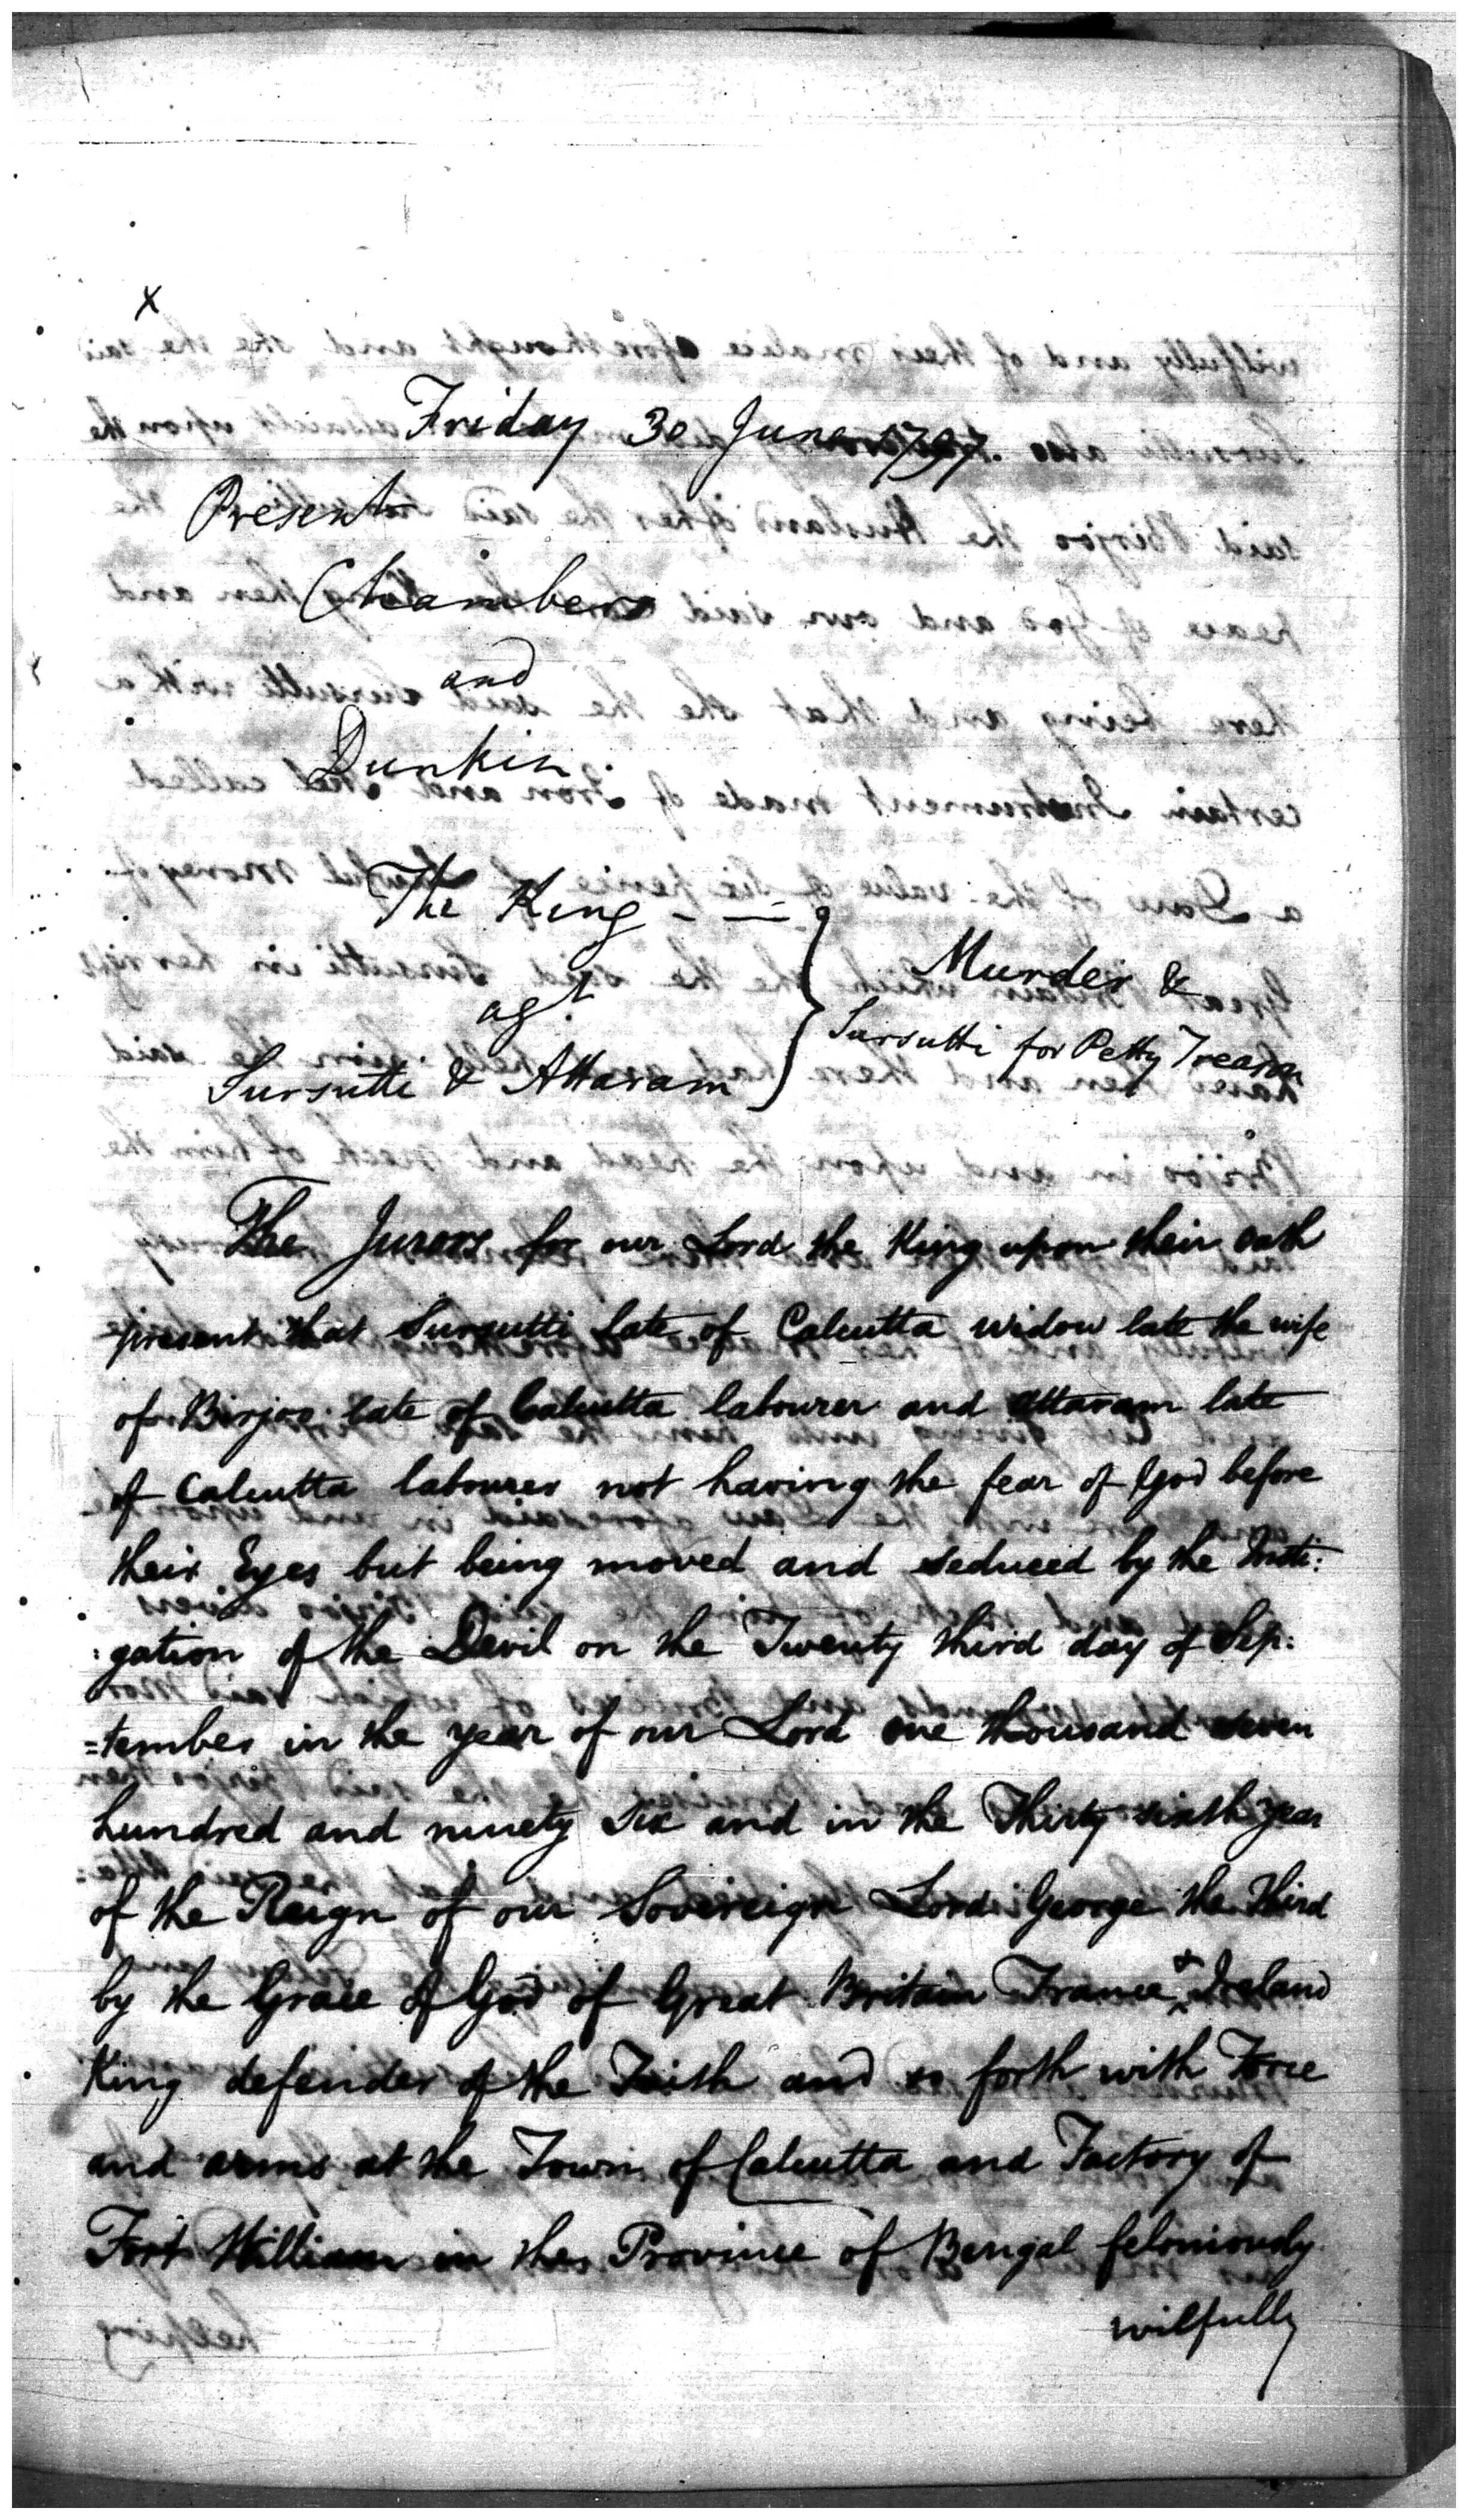 x
Friday 30 June 1797.
Present
Chambers
and
Dunkin.
The King - —
agt
Sursutti & Attaram
Murder &
Sursutti for Petty Treason
The Jurors for our Lord the King upon their oath
present that Sursutti late of Calcutta widow late the wife
of Birjoo late of Calcutta labourer and Attaram late
of Calcutta labourer not having the fear of God before
their Eyes but being moved and seduced by the Insti:
:gation of the Devil on the Twenty third day of Sep:
=tember in the year of our Lord one thousand seven
hundred and ninety Six and in the Thirty sixth year
of the Reign of our Sovereign Lord George the Third
by the Grace of God of Great Britain France & Ireland
King defender of the Faith and so forth with Force
and arms at the Town of Calcutta and Factory of
Fort William in the Province of Bengal feloniously
wilfully